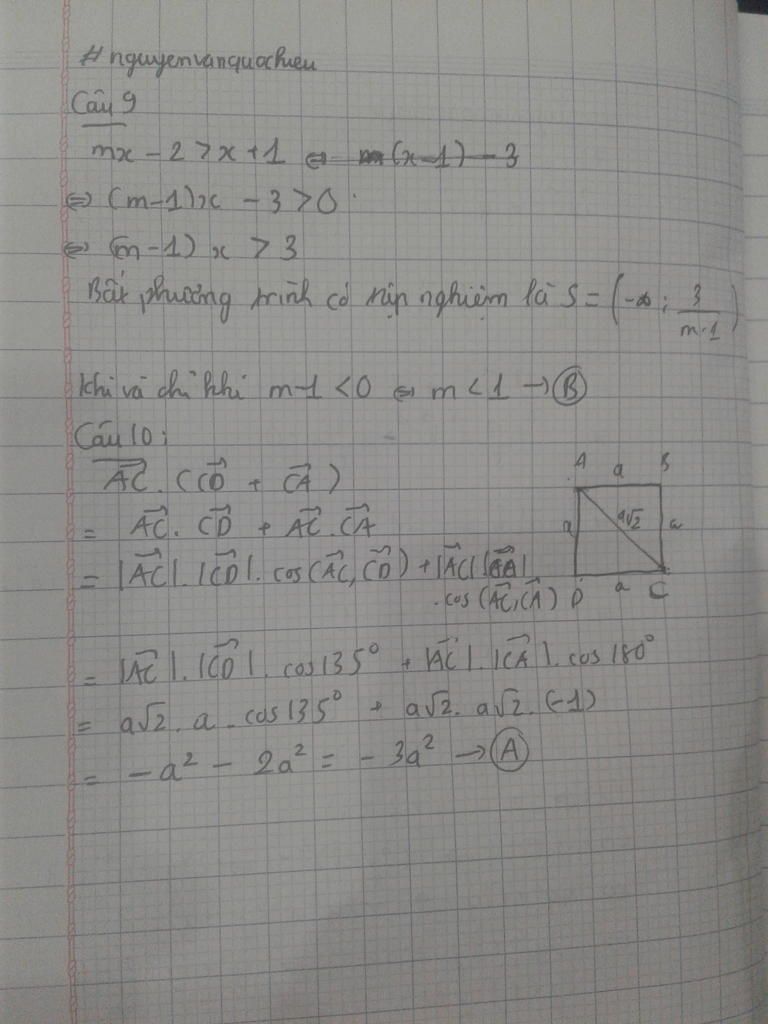 #nguyenvanquochieu
Câu 9
mx - 2 > x + 1 ⇔ m(x-1) - 3
⇔ (m-1)x - 3 > 0
⇔ (m-1) x > 3
Bất phương trình có tập nghiệm là S = (-∞; 3/(m-1))
khi và chỉ khi m-1 < 0 ⇔ m < 1 → Ⓑ
Câu 10:
A a B
\overrightarrow{AC}.(\overrightarrow{CD} + \overrightarrow{CA})
= \overrightarrow{AC}.\overrightarrow{CD} + \overrightarrow{AC}.\overrightarrow{CA}
a a√2 a
= |\overrightarrow{AC}|.|\overrightarrow{CD}|.cos(\overrightarrow{AC},\overrightarrow{CD}) + |\overrightarrow{AC}||\overrightarrow{CA}|
.cos(\overrightarrow{AC},\overrightarrow{CA})
D a C
= |\overrightarrow{AC}|.|\overrightarrow{CD}|.cos135° + |\overrightarrow{AC}|.|\overrightarrow{CA}|.cos180°
= a√2.a.cos135° + a√2.a√2.(-1)
= -a² - 2a² = -3a² → Ⓐ